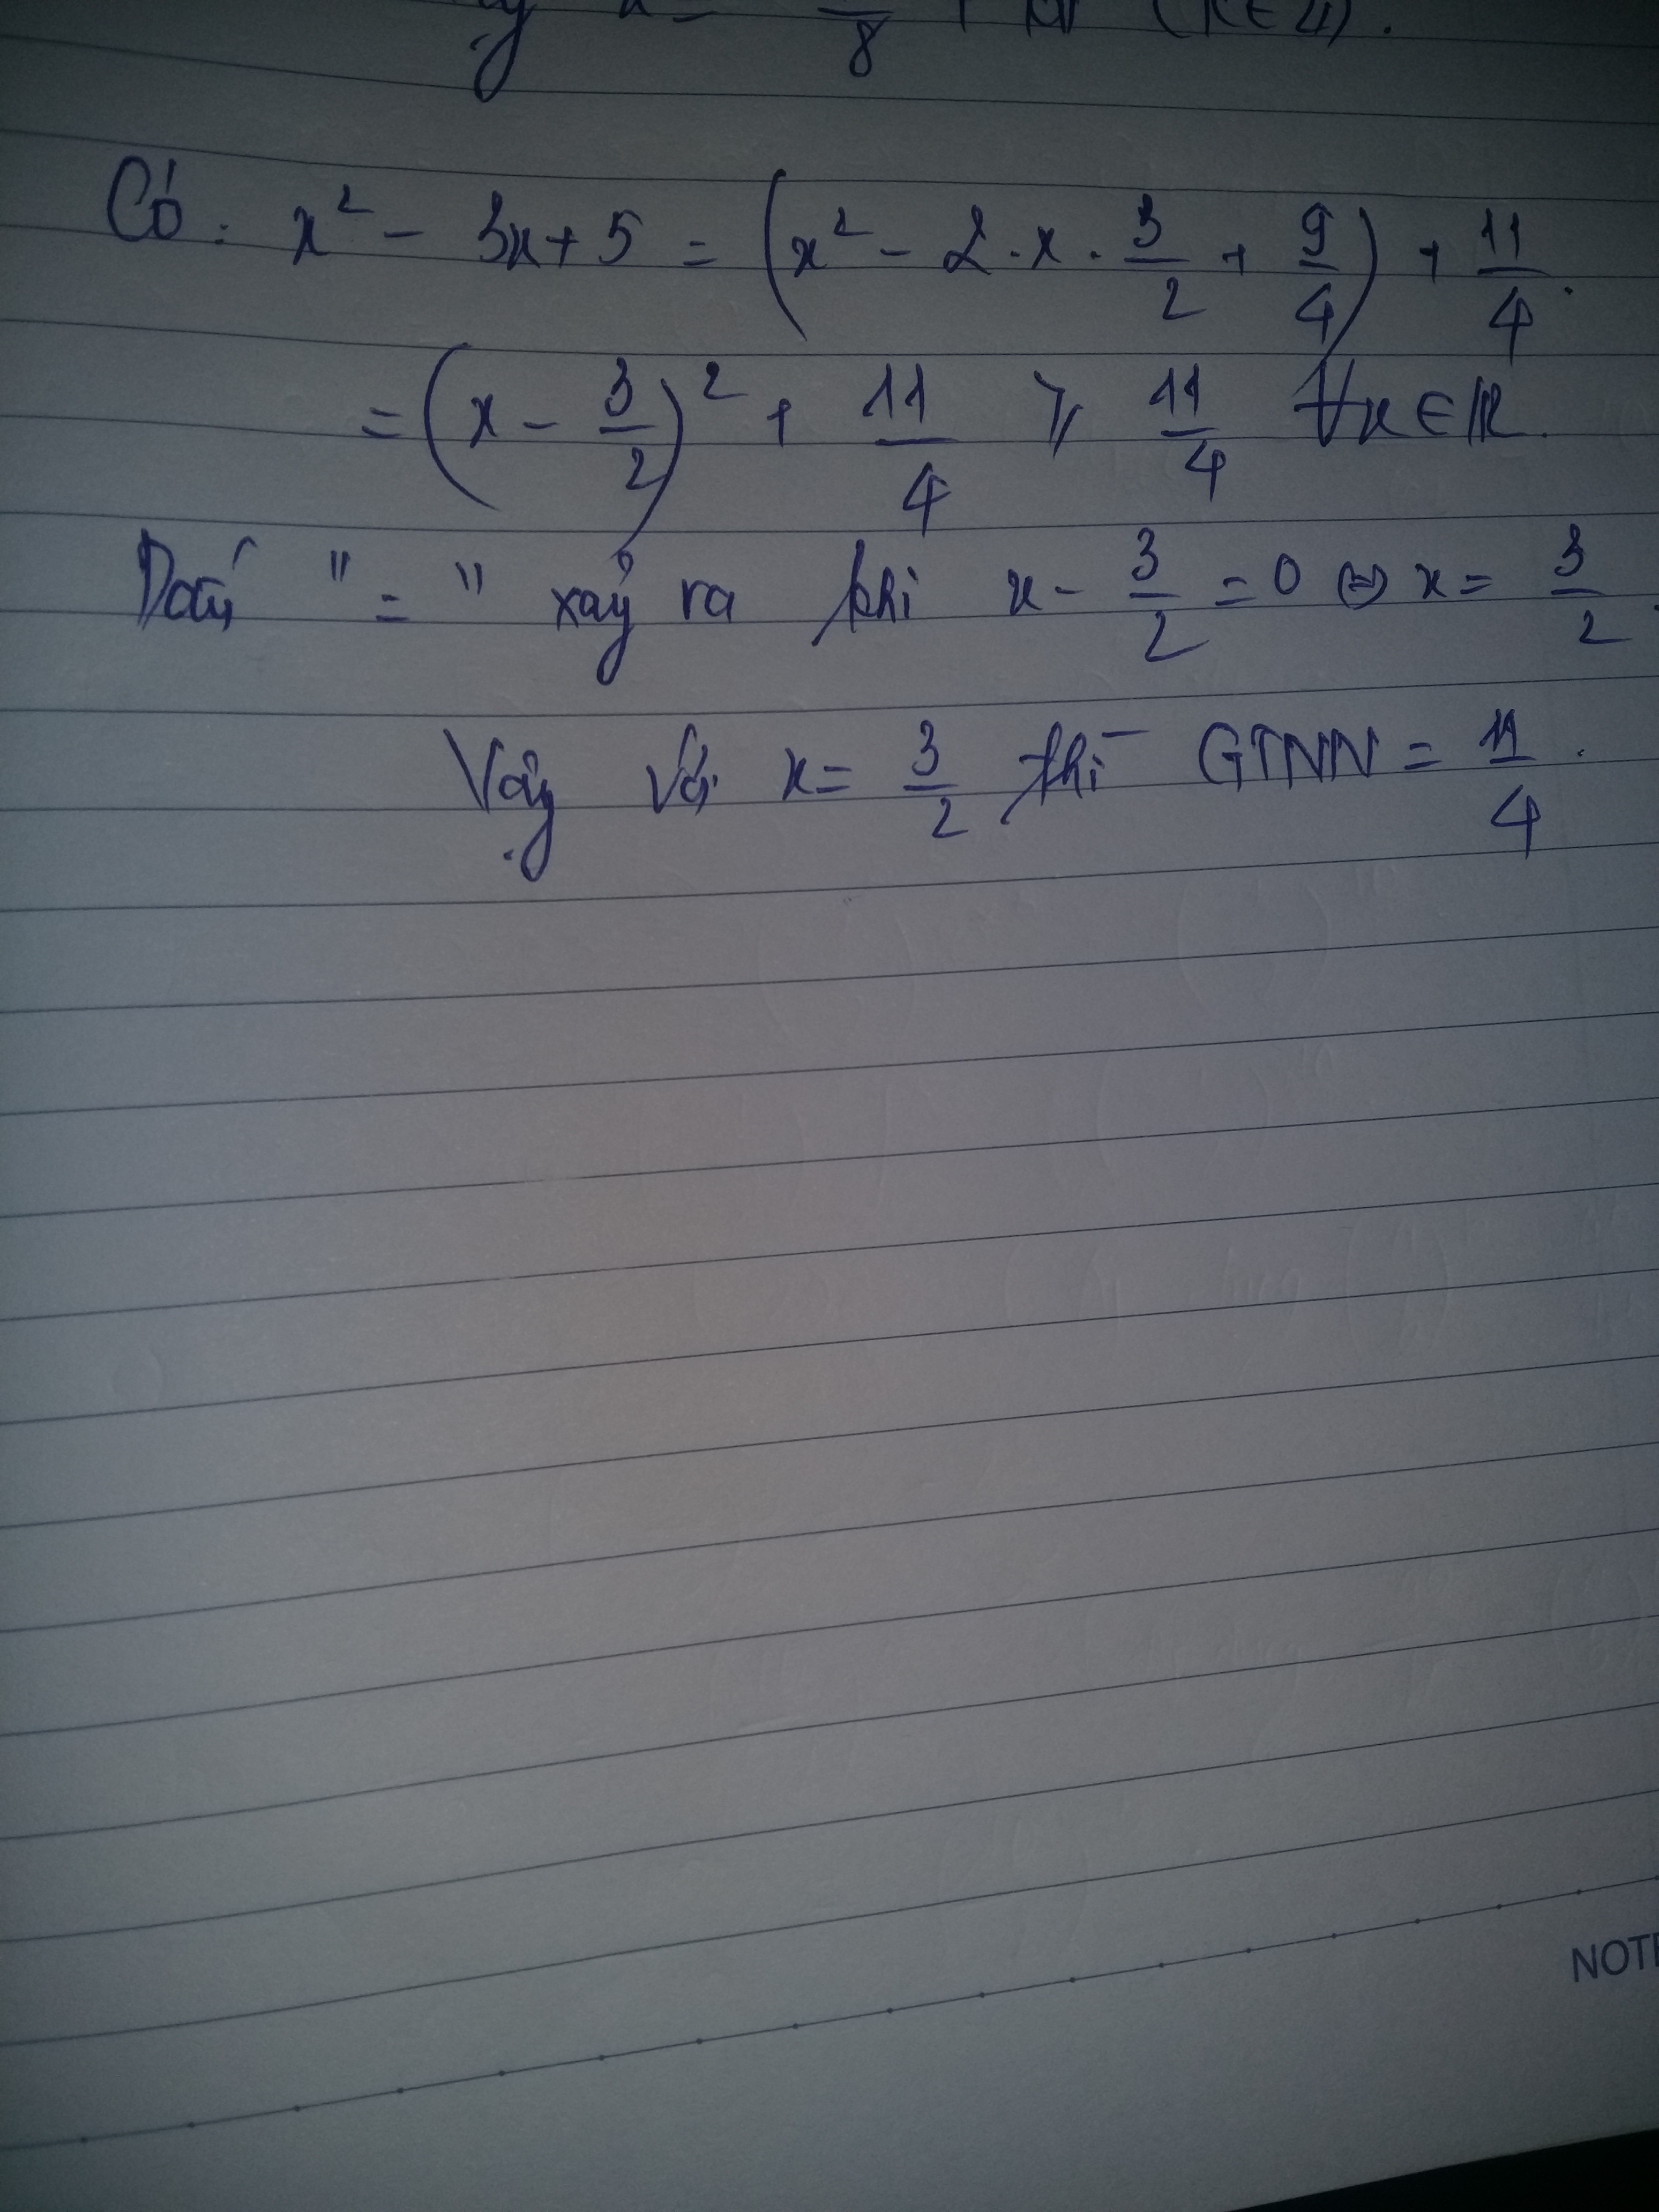 8 (k ∈ Z).
Có: x² - 3x + 5 = (x² - 2 . x . 3/2 + 9/4) + 11/4.
= (x - 3/2)² + 11/4 ≥ 11/4 ∀x ∈ R.
Dấu " = " xảy ra khi x - 3/2 = 0 ⇔ x = 3/2.
Vậy với x = 3/2 thì GTNN = 11/4.